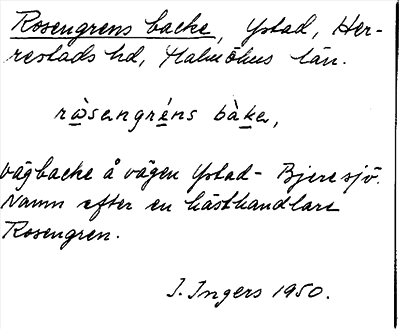 Rosengrens backe, Ystad, Her-
restads hd, Malmöhus län.
ròsengréns bàke,
Vägbacke å vägen Ystad - Bjeresjö.
Namn efter en hästhandlare
Rosengren.
I. Ingers 1950.